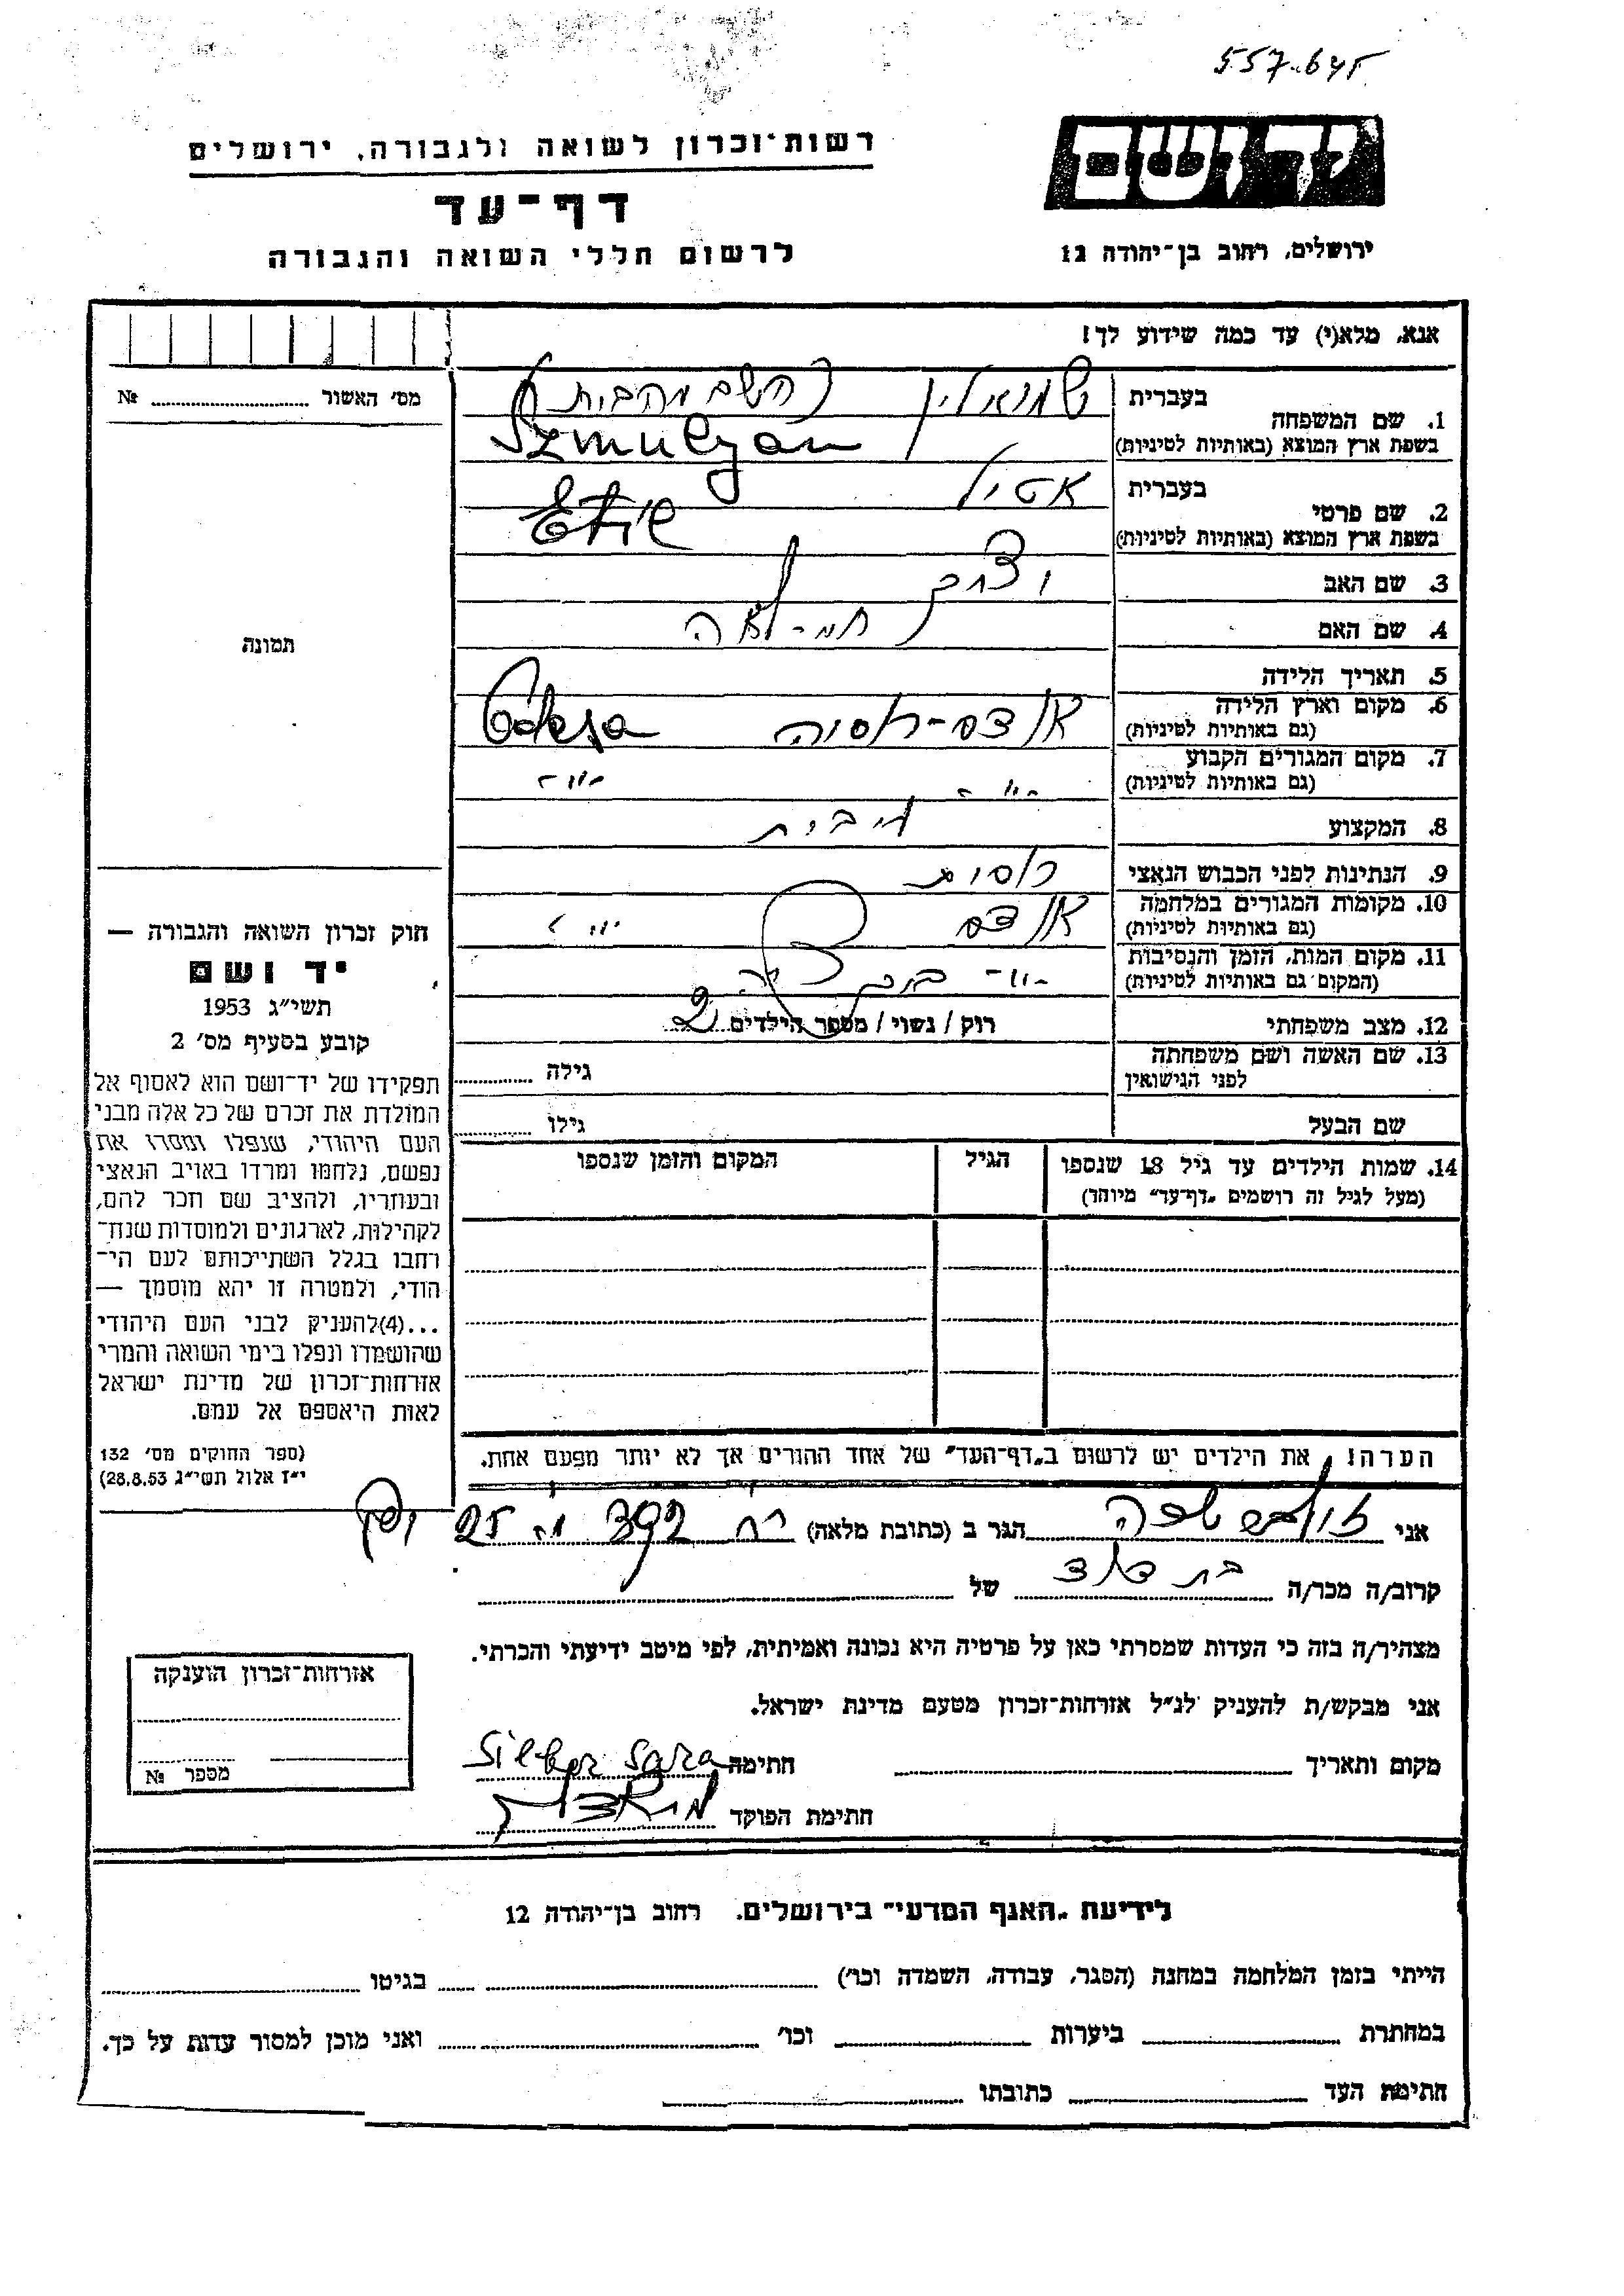 557.645
יד ושם
רשות־זכרון לשואה ולגבורה, ירושלים
דף־עד
לרשום חללי השואה והגבורה
ירושלים, רחוב בן־יהודה 12
אנא, מלא(י) עד כמה שידוע לך!
מס׳ האשור № 
1. שם המשפחה
בעברית
(השם מהבית)
בשפת ארץ המוצא (באותיות לטיניות) Szmulyan
2. שם פרטי
בעברית
בשפת ארץ המוצא (באותיות לטיניות)
3. שם האב
4. שם האם
5. תאריך הלידה
6. מקום וארץ הלידה
(גם באותיות לטיניות)
7. מקום המגורים הקבוע
(גם באותיות לטיניות) -״- -״-
8. המקצוע
9. הנתינות לפני הכבוש הנאצי רוסית
10. מקומות המגורים במלחמה
(גם באותיות לטיניות)
11. מקום המות, הזמן והנסיבות
(המקום גם באותיות לטיניות)
12. מצב משפחתי רוק / נשוי / מספר הילדים 2
13. שם האשה ושם משפחתה
לפני הנישואין גילה
שם הבעל גילו
14. שמות הילדים עד גיל 18 שנספו
(מעל לגיל זה רושמים „דף־עד״ מיוחד)
הגיל
המקום והזמן שנספו
תמונה
חוק זכרון השואה והגבורה —
יד ושם
תשי״ג 1953
קובע בסעיף מס׳ 2
תפקידו של יד־ושם הוא לאסוף אל
המולדת את זכרם של כל אלה מבני
העם היהודי, שנפלו ומסרו את
נפשם, נלחמו ומרדו באויב הנאצי
ובעוזריו, ולהציב שם וזכר להם,
לקהילות, לארגונים ולמוסדות שנח־
רבו בגלל השתייכותם לעם הי־
הודי, ולמטרה זו יהא מוסמך —
...(4)להעניק לבני העם היהודי
שהושמדו ונפלו בימי השואה והמרי
אזרחות־זכרון של מדינת ישראל
לאות היאספם אל עמם.
(ספר החוקים מס׳ 132
י״ז אלול תשי״ג 28.8.53)
הערה! את הילדים יש לרשום ב„דף־העד״ של אחד ההורים אך לא יותר מפעם אחת.
אני זילבר שרה הגר ב (כתובת מלאה) רח 392
קרוב/ה מכר/ה בת דוד של
מצהיר/ה בזה כי העדות שמסרתי כאן על פרטיה היא נכונה ואמיתית, לפי מיטב ידיעתי והכרתי.
אני מבקש/ת להעניק לנ״ל אזרחות־זכרון מטעם מדינת ישראל.
מקום ותאריך חתימה Silber Sara
חתימת הפוקד
אזרחות־זכרון הוענקה
מספר №
לידיעת „האגף המדעי״ בירושלים. רחוב בן־יהודה 12
הייתי בזמן המלחמה במחנה (הסגר, עבודה, השמדה וכו׳) בגיטו
במחתרת ביערות וכו׳ ואני מוכן למסור עדות על כך.
חתימת העד כתובתו